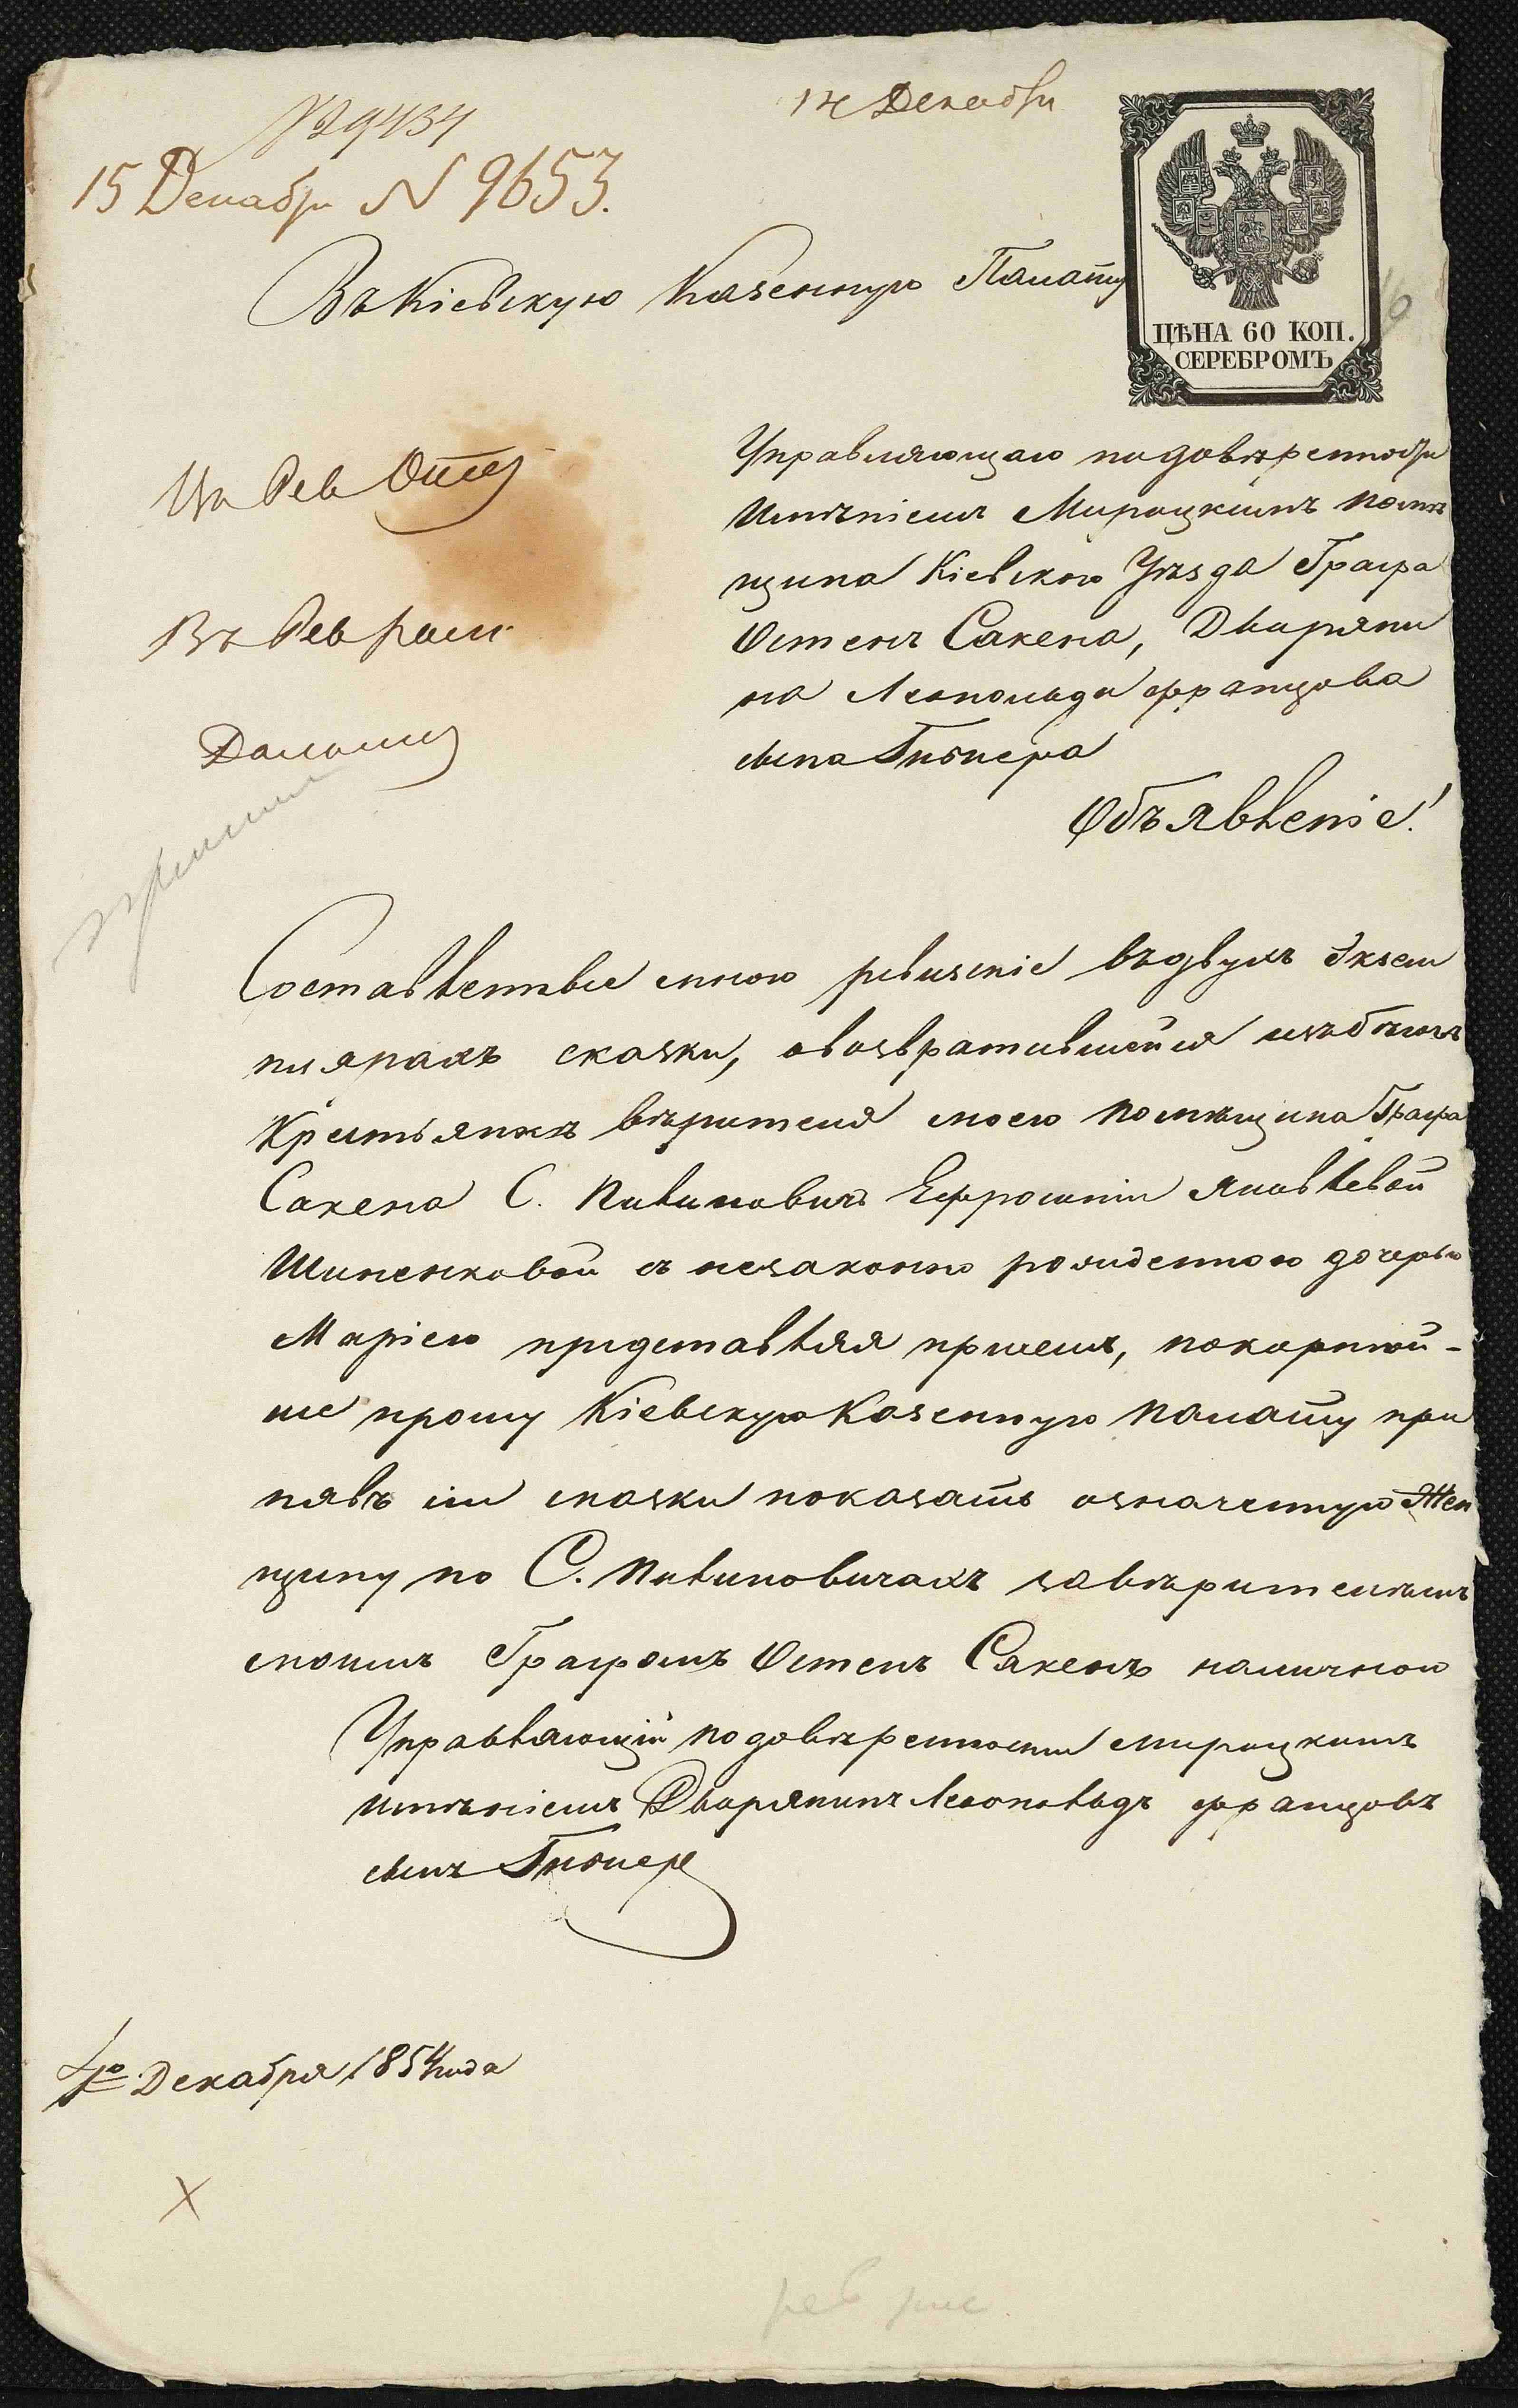 № 9434
14 Декабря
15 Декабря N 9653.
ЦѢНА 60 КОП.
СЕРЕБРОМЪ
Въ Кіевскую Казенную Палату
Управляющаго по довѣренности
Имѣніемъ Мироцкимъ помѣ
щика Кіевскаго Уѣзда Графа
Остенъ Сакена, Дворяни
на Леопольда Францова
сына
Объявленіе!
Въ Рев
Составленные мною ревизскіе въ двухъ Экзем
плярахъ сказки, о возвратившейся изъ бѣговъ
Крестьянкѣ вѣрителя моего помѣщика Графа
Сакена С. Пилиповичъ Ефросиніи Яковлевой
Шипенковой съ незаконно рожденною дочерью
Маріею представляя при семъ, покорнѣй-
ше прошу Кіевскую Казенную Палату при
нявъ сіи сказки показать означенную Жен
щину по С. Пилиповичахъ за вѣрителемъ
моимъ Графомъ Остенъ Сакенъ наличною
Управляющій по довѣренности Мироцкимъ
имѣніемъ Дворянинъ Леопольдъ Францовъ
сынъ
Декабря 1854 года